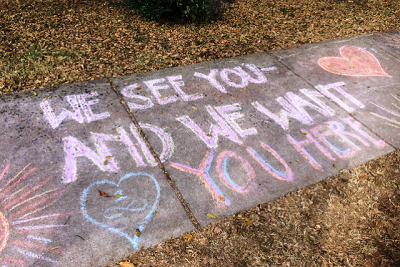 WE SEE YOU-
AND WE WANT
YOU HERE